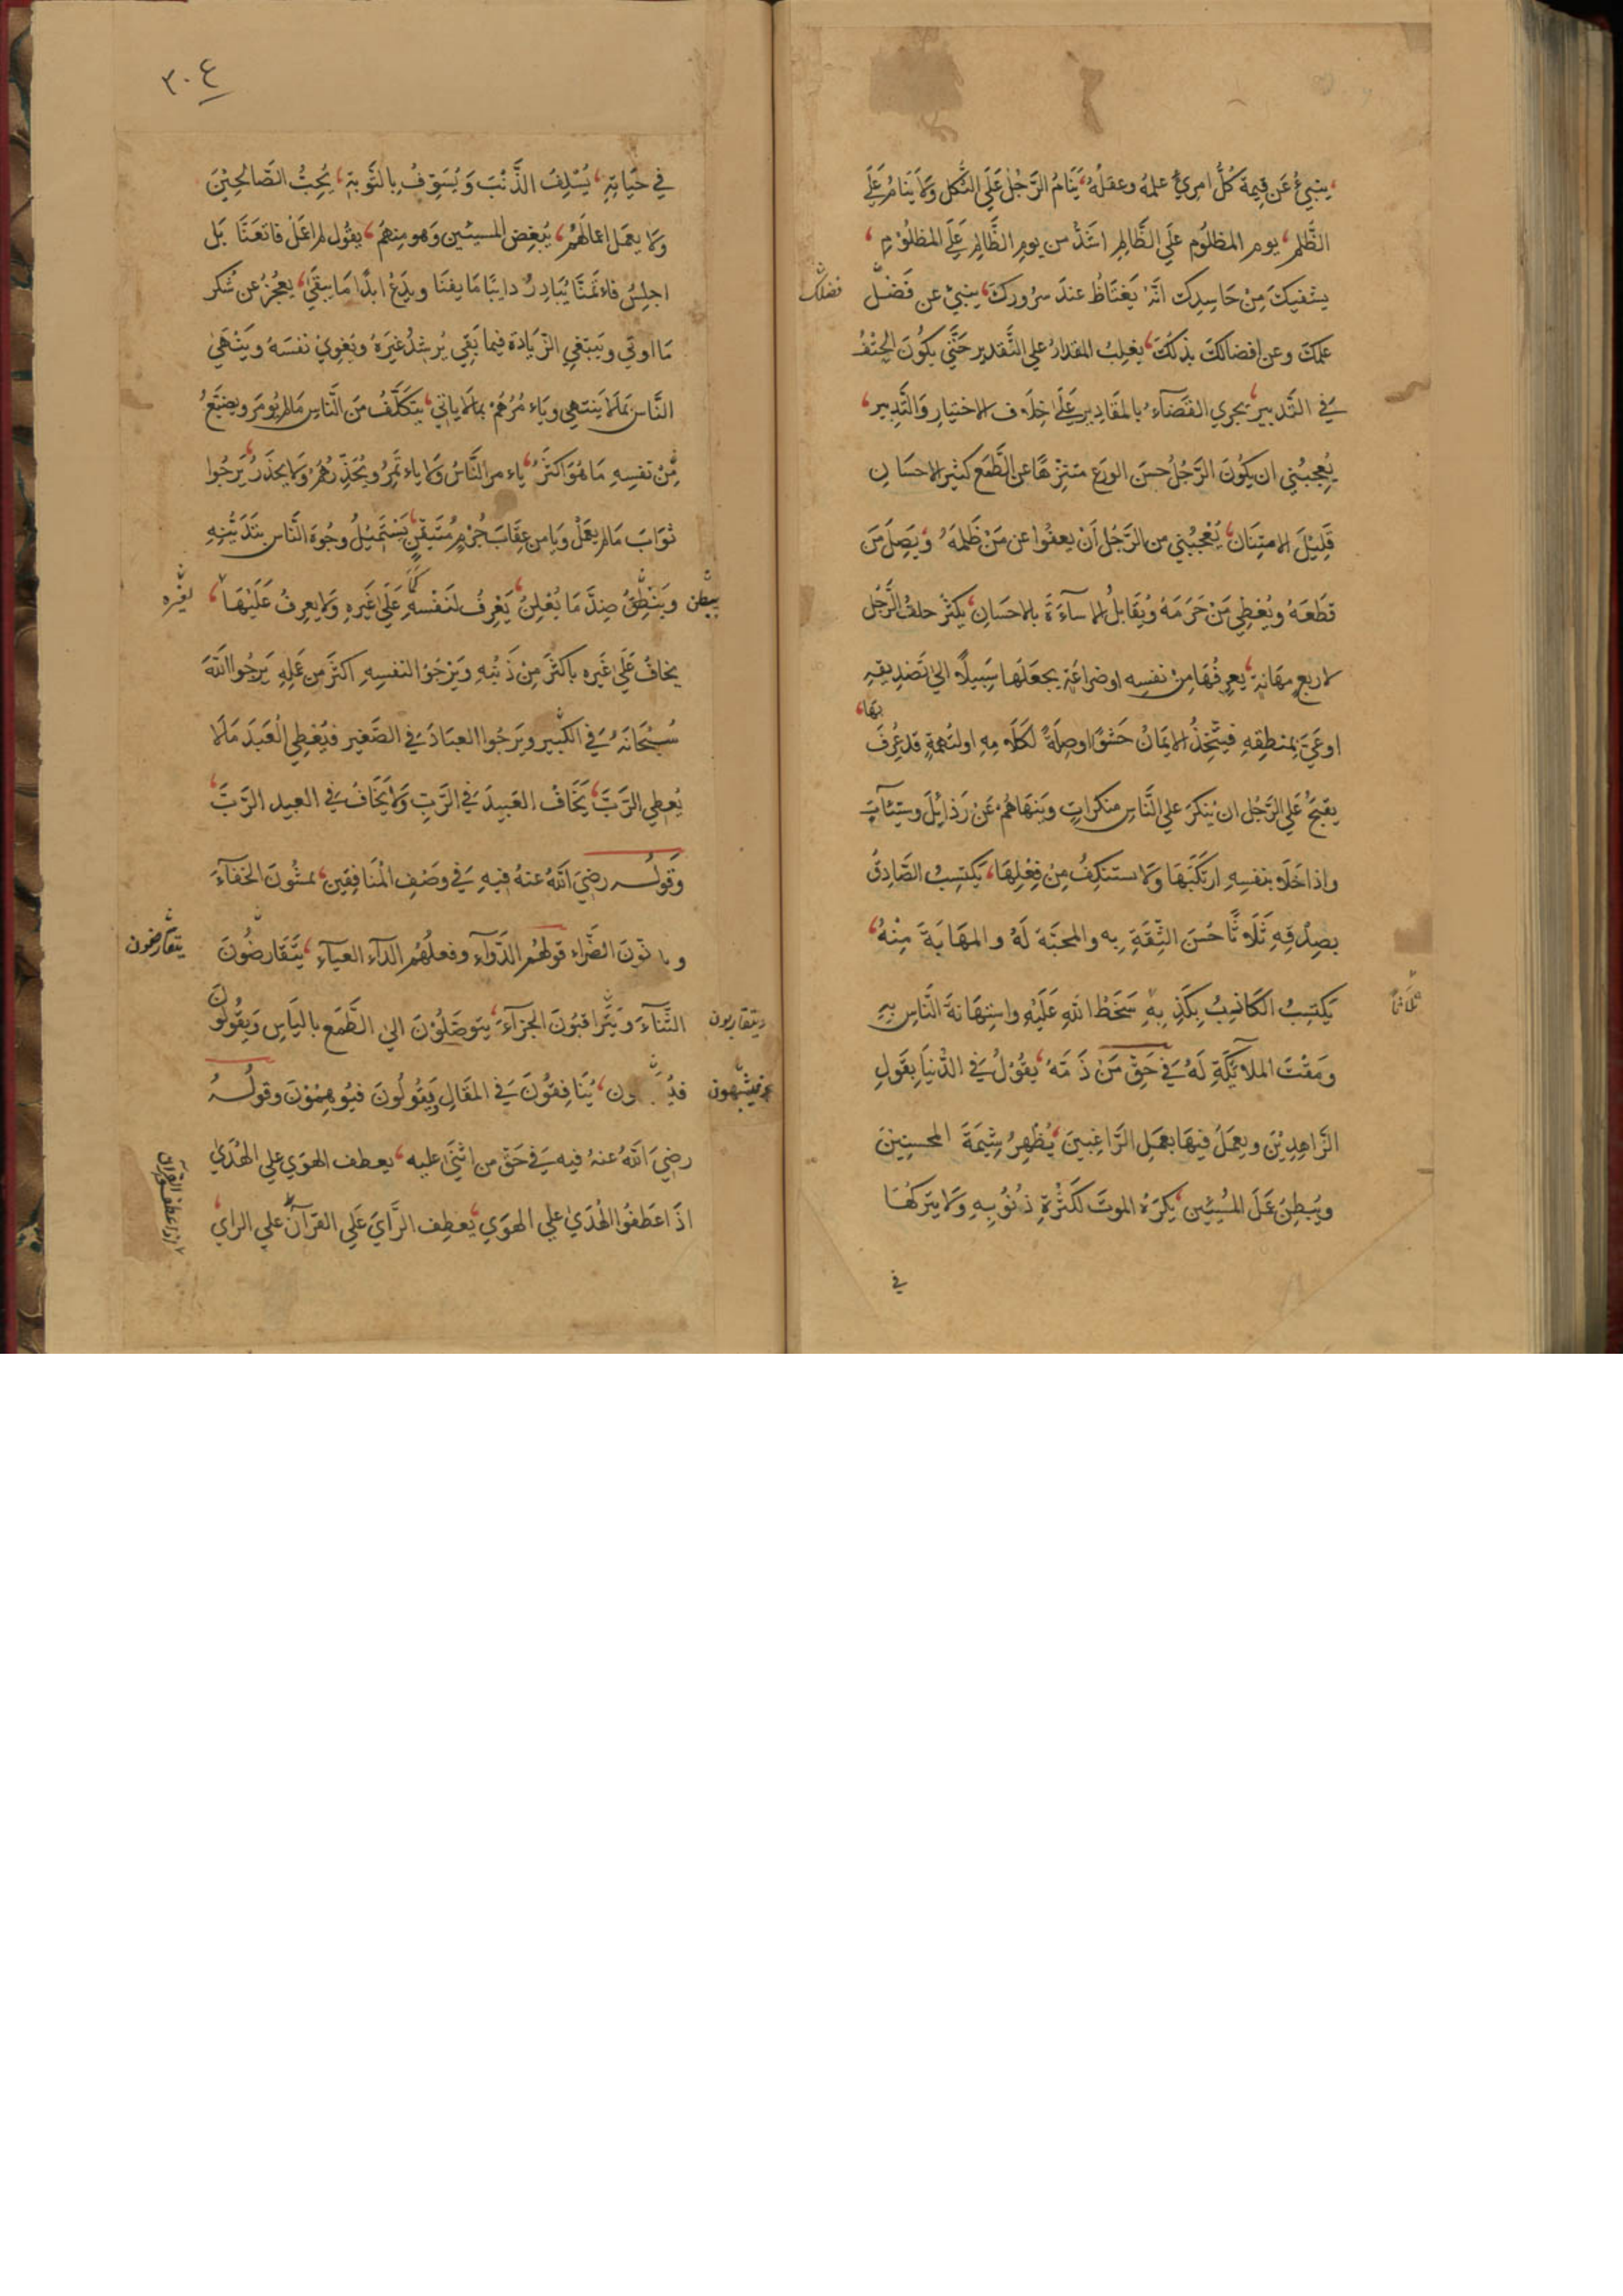 ينبئ عن قيمة كل امرئ علمه وعقله، ينام الرجل على الثكل ولا ينام علي
الظلم، يوم المظلوم علي الظالم اشد من يوم الظالم علي المظلوم،
يشفيك من حاسدك انه يغتاظ عند سرورك، ينبئ عن فضل
فضلك
علمك وعن افضالك بذلك، يغلب المقدار علي التقدير حتي يكون الحتف
في التدبير، يجري القضاء بالمقادير علي خلاف الاختيار والتدبير،
يعجبني ان يكون الرجل حسن الورع متنزها عن الطمع كثير الاحسان
قليل الامتنان، يعجبني من الرجل أن يعفوا عن من ظلمه ويصل من
قطعه ويعطي من حرمه ويقابل الاساءة بالاحسان، يكثر حلف الرجل
لاربع مهانة يعرفها من نفسه او ضراعة يجعلها سبيلا الي تصديقه
او عي بمنطقه فيتخذ الايمان حشوا وصلة لكلامه او لتهمة قد عرف
بها،
يقبح علي الرجل ان ينكر علي الناس منكرات وينهاهم عن رذايل وسيئات
واذا خلا بنفسه ارتكبها ولا ستنكف من فعلها، يكتسب الصادق
بصدقه ثلاثا حسن الثقة به والمحبة له والمهابة منه،
يكتسب الكاذب بكذبه سخط الله عليه واستهانة الناس به
ثلاثا
ومقت الملائكة له في حق من ذمه، يقول في الدنيا بقول
الزاهدين ويعمل فيها بعمل الراغبين، يظهر شيمة المحسنين
ويبطن عمل المسيئين، يكره الموت لكثرة ذنوبه ولا يتركها
في
٣٠٤
في حياته، يسلف الذنب ويسوف بالتوبة، يحب الصالحين
ولا يعمل اعمالهم، يبغض المسيئين وهو منهم، يقول لم اعمل فاتعنا بل
اجلس فاءتمنا يبادر دايبا ما يفنا ويدع ابدا ما يبقي، يعجز عن شكر
ما اوتي ويبتغي الزيادة فيما بقي يرشد غيره ويغوي نفسه وينهي
الناس بما لا ينتهي وياءمرهم بما لا ياتي، يتكلف من الناس مالم يومر ويضيع
من نفسه ما هو اكثر، ياءمر الناس ولا ياءتمر ويحذرهم ولا يحذر، يرجوا
ثواب مالم يعمل ويامن عقاب جرم متيقن، يستميل وجوه الناس بتدينه
يبطن وينطق ضد ما يعلن، يعرف لنفسه علي غيره ولا يعرف عليها،
لغيره
يخاف علي غيره باكثر من ذنبه ويرجو لنفسه اكثر من عمله يرجوا الله
سبحانه في الكبير ويرجوا العباد في الصغير فيعطي العبد مالا
يعطي الرب، يخاف العبيد في الرب ولا يخاف في العبيد الرب،
وقوله رضي الله عنه فيه في وصف المنافقين، يمشون الخفاء
الضراء قولهم الدواء وفعلهم الداء العياء، يتقارضون
يتقارضون
الثناء ويتراقبون الجزاء، يتوصلون الي الطمع بالياس ويقولون
ويتقاربون
ينافقون في المقال يقولون فيوهمون وقوله
رضي الله عنه فيه في حق من اثني عليه، يعطف الهوي علي الهدي
اذا عطفوا الهدي علي الهوي، يعطف الراي علي القرآن علي الراي،
اذا عطفوا القرآن